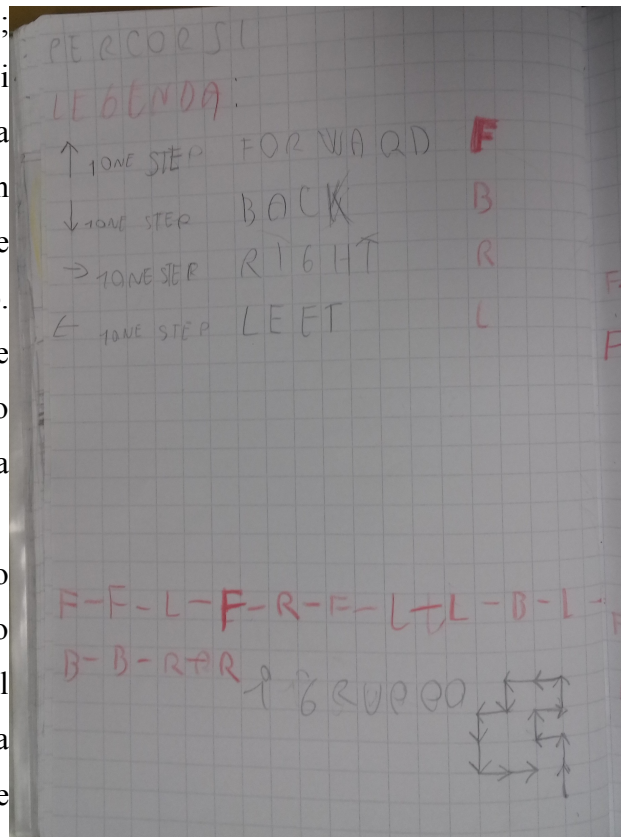 PERCORSI
LEGENDA:
↑ 1ONE STEP FORWARD F
↓ 1ONE STEP BACK B
→ 1ONE STEP RIGHT R
← 1ONE STEP LEFT L
F-F-L-F-R-F-L-L-B-L-
B-B-R-R
1° GRUPPO